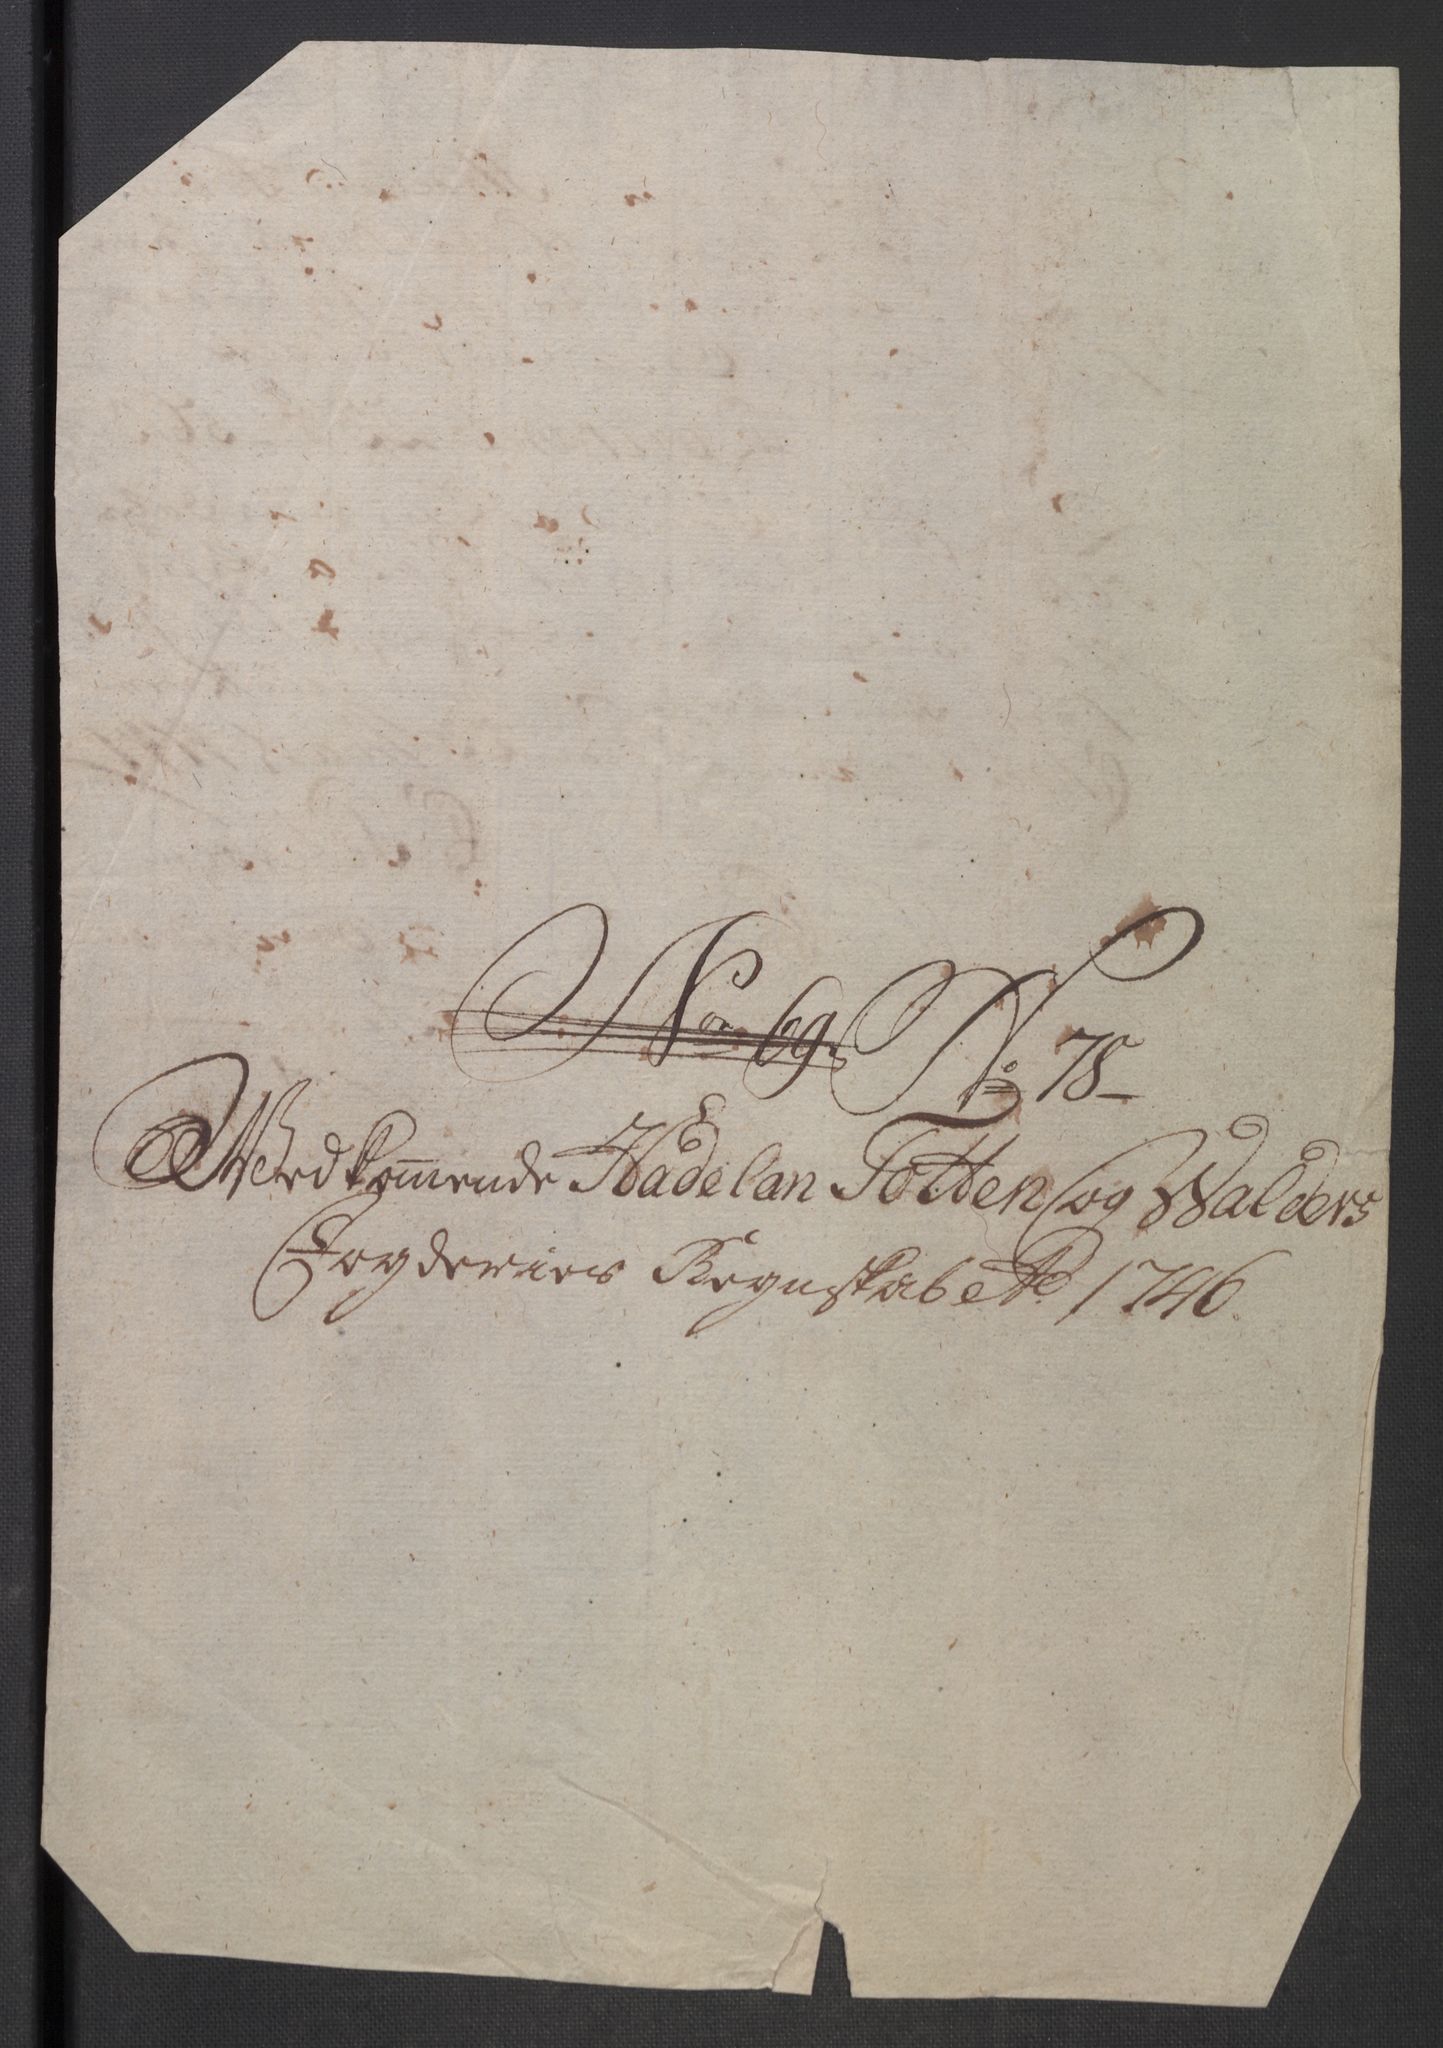 No 69. No 78
Wedkommende Hadelan Totten og Walders
Fogderies Regnskab Ao 1746.